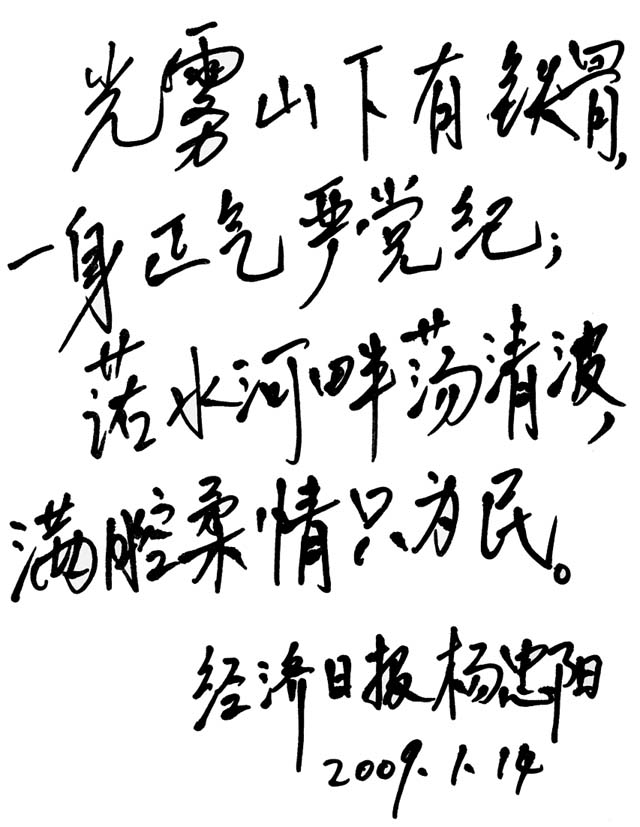 光雾山下有铁骨,
一身正气严党纪;
诺水河畔荡清波,
满腔柔情只为民。
经济日报 杨忠阳
2009.1.14